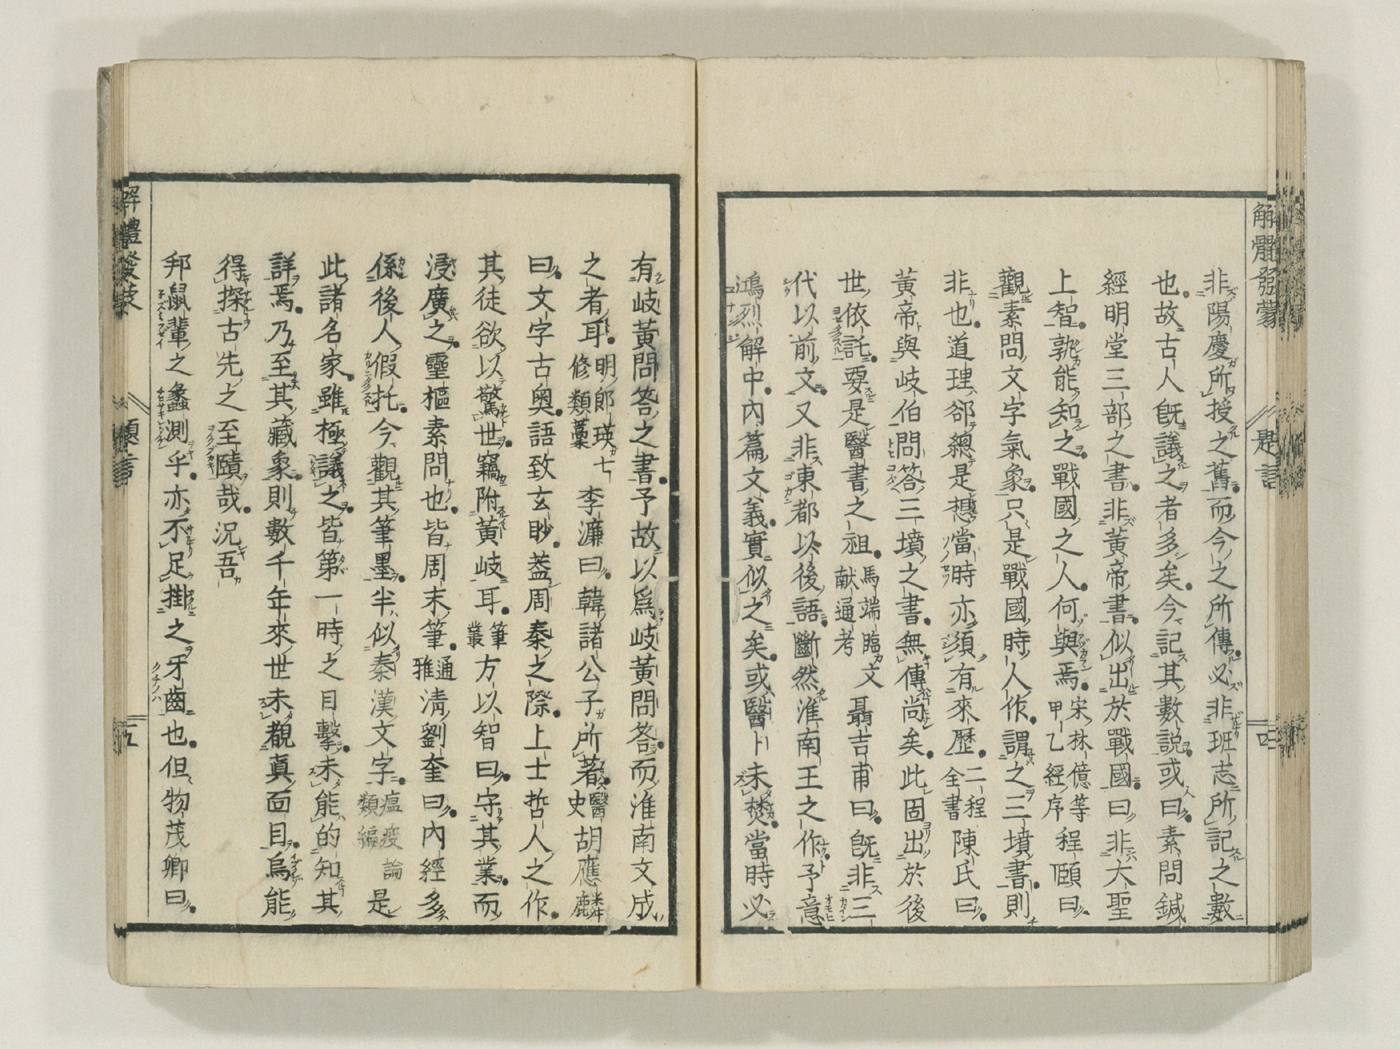 解體發蒙
題言
四
非陽慶所授之舊而今之所傳必非班志所記之數
也故古人既議之者多矣今記其數説或曰素問鍼
經明堂三部之書非黄帝書似出於戰國曰非大聖
上智孰能知之戰國之人何與焉宋林億等甲乙經序程頤曰
觀素問文字氣象只是戰國時人作謂之三墳書則
非也道理却總是想當時亦須有來歷二程全書陳氏曰
黄帝與岐伯問答三墳之書無傳尚矣此固出於後
世依託要是醫書之祖馬端臨文献通考聶吉甫曰既非三
代以前文又非東都以後語斷然淮南王之作予意
鴻烈解中内篇文義實似之矣或醫卜未焚當時必
有岐黄問答之書予故以爲岐黄問答而淮南文成
之者耳明郎瑛七修類藁李濂曰韓諸公子所著醫史胡應麟
曰文字古奥語致玄眇葢周秦之際上士哲人之作
其徒欲以驚世竊附黄岐耳筆叢方以智曰守其業而
浸廣之靈樞素問也皆周末筆通雅淸劉奎曰内經多
係後人假托今觀其筆墨半似秦漢文字瘟疫論類編是
此諸名家雖極議之皆第一時之目擊未能的知其
詳焉乃至其藏象則數千年來世未覩眞面目烏能
得探古先之至賾哉況吾
邦鼠輩之蠡測乎亦不足掛之牙齒也但物茂卿曰
解體發蒙
題言
五